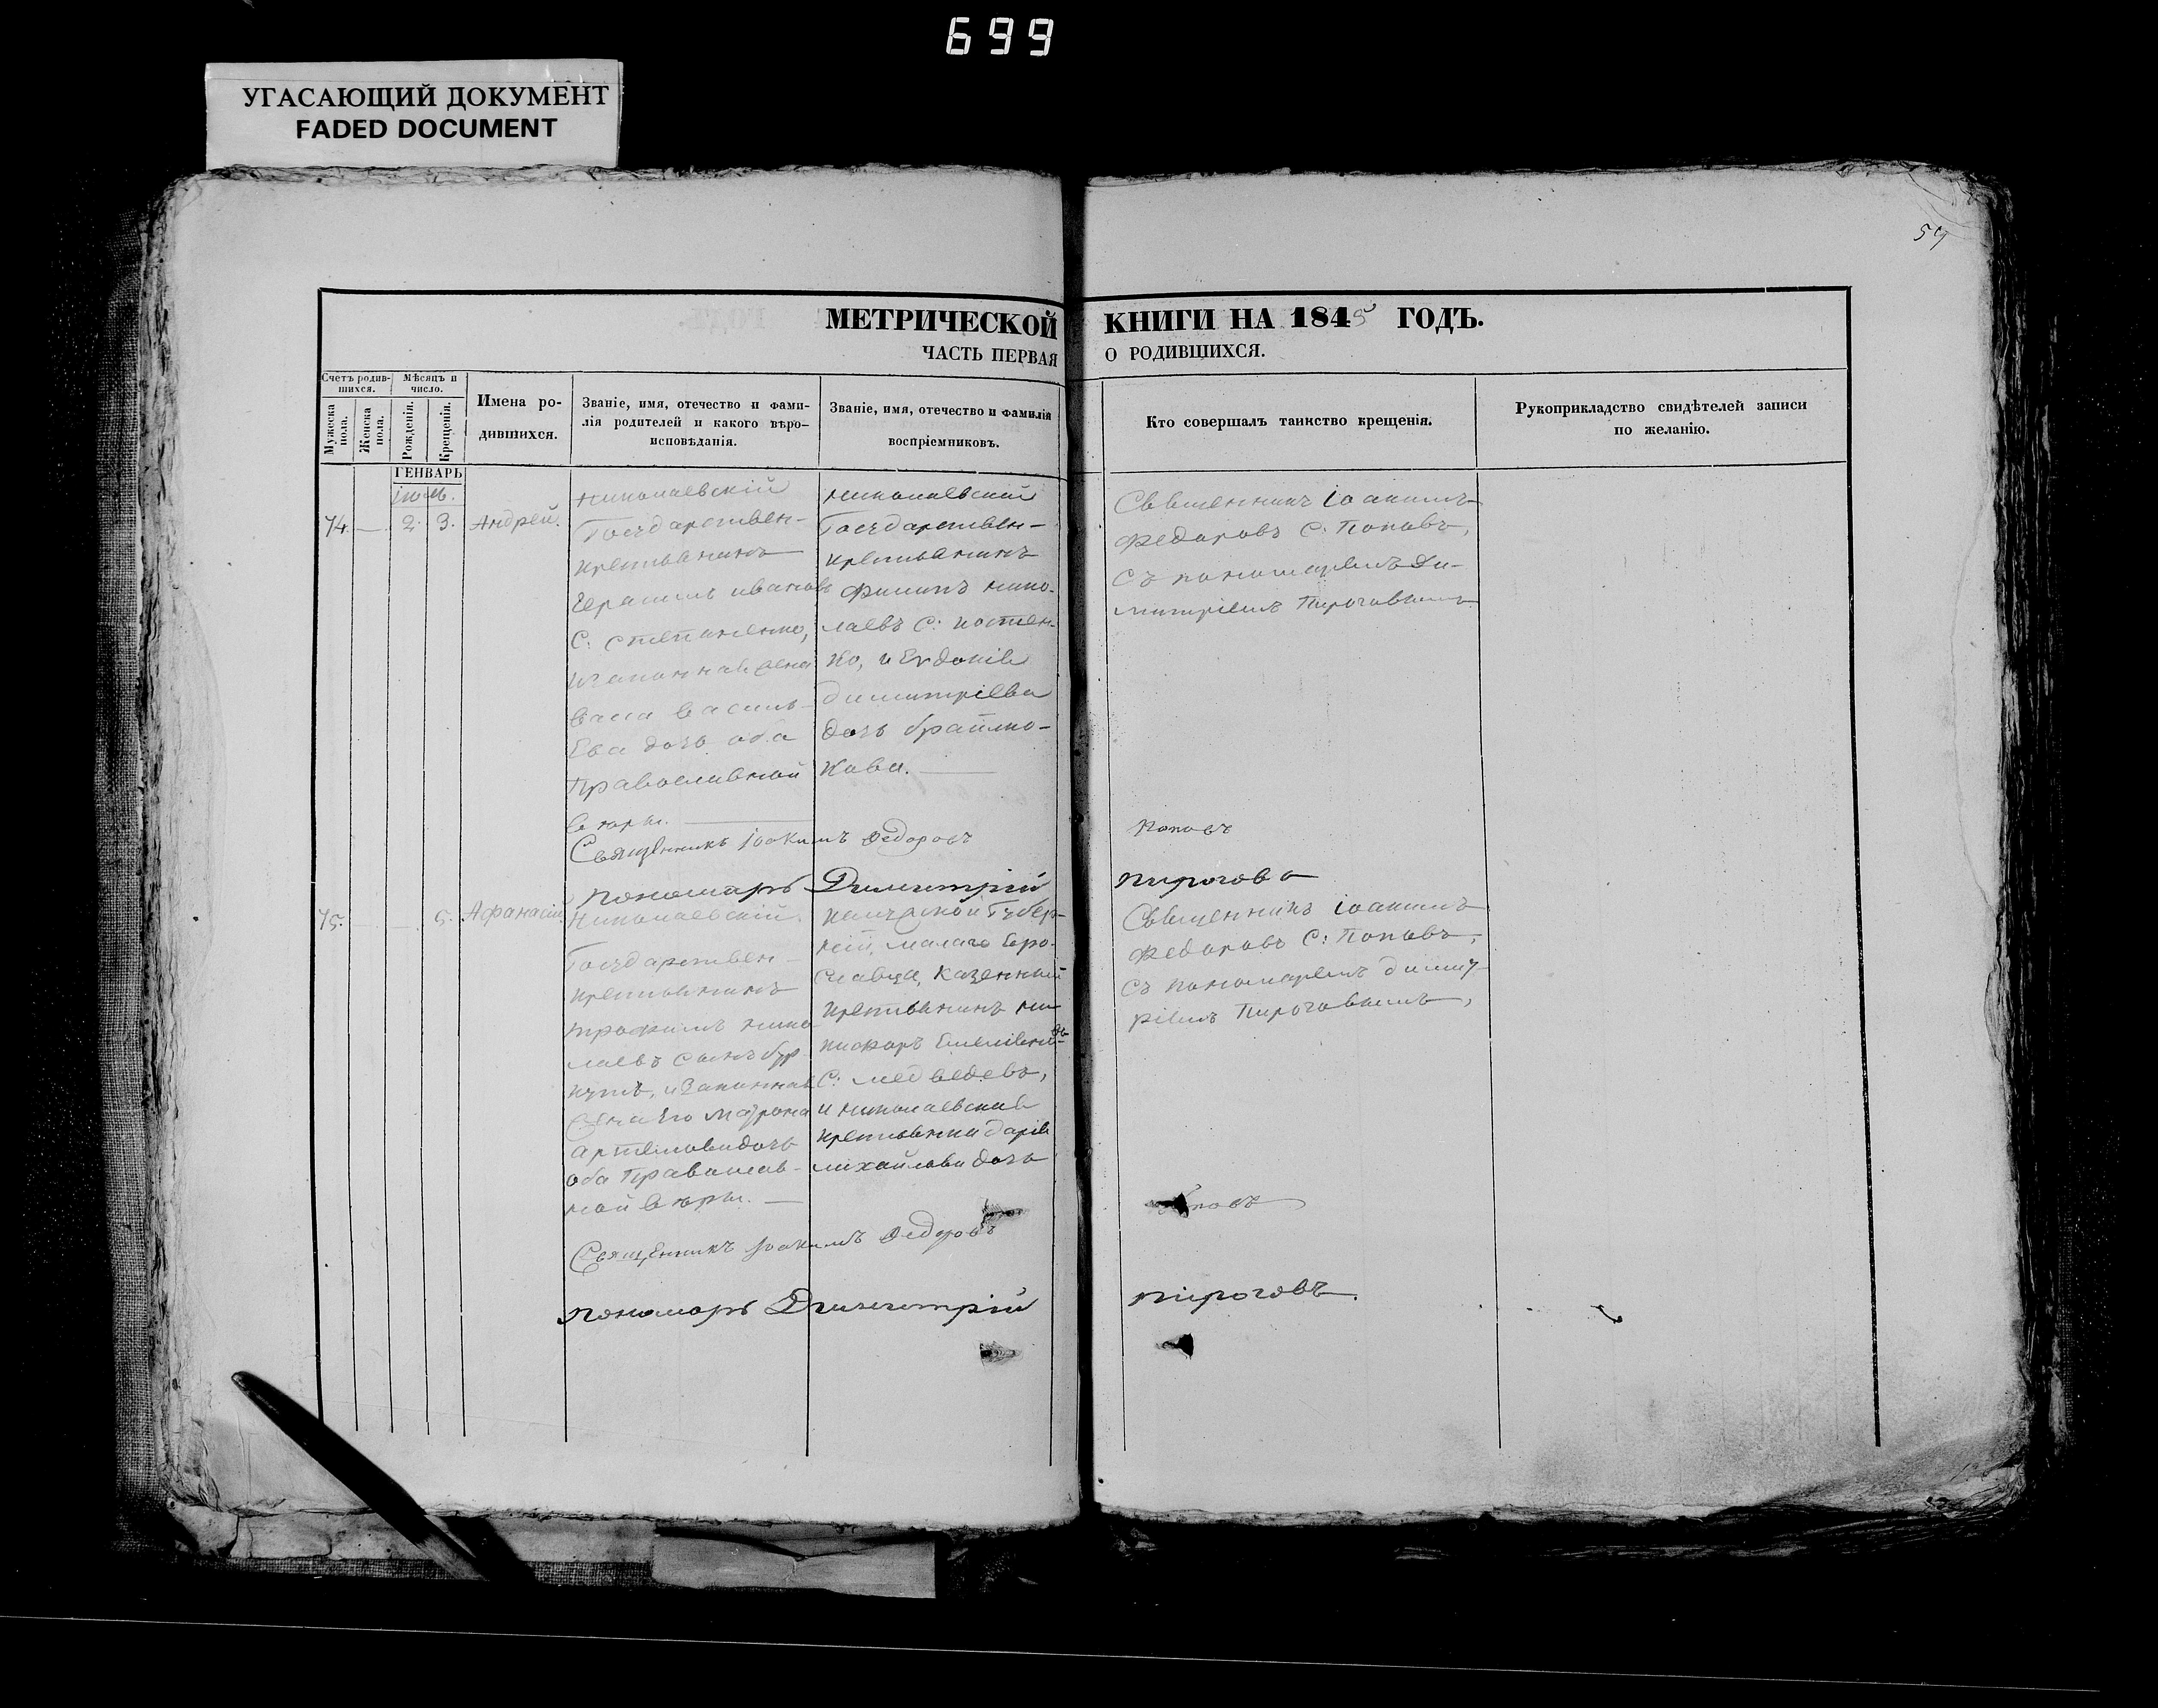 699
УГАСАЮЩИЙ ДОКУМЕНТ
FADED DOCUMENT
59
МЕТРИЧЕСКОЙ КНИГИ НА 1845 ГОДЪ.
ЧАСТЬ ПЕРВАЯ О РОДИВШИХСЯ.
Счетъ родив-
шихся.
Мужеска
пола.
Женска
пола.
Мѣсяцъ и
число.
Рожденія.
Крещенія.
Имена ро-
дившихся.
Званіе, имя, отечество и фами-
лія родителей и какого вѣро-
исповѣданія.
Званіе, имя, отечество и фамилія
воспріемниковъ.
Кто совершалъ таинство крещенія.
Рукоприкладство свидѣтелей записи
по желанію.
ГЕНВАРЬ
74. — 2. 3. Андрей.
Николаевскій
Государствен-
крестьянинъ
Герасимъ ивановъ
С: степаненко,
законная жена
васильь-
Ева дочь оба
Православной
вѣры. —
Николаевскій
Государствен-
крестьянинъ
Филипъ нико-
лаевъ С: костен-
ко, и Евдокія
димитріева
дочь братмо-
кова. —
Священникъ іоакимъ
Федоровъ С: Поповъ,
Съ пономаремъ Ди-
митріемъ Пироговымъ
Священникъ іоакимъ Федоровъ Поповъ
пономарь Димитрій пирогова
75. — 5. Афанасій.
Николаевскій
Государствен-
крестьянинъ
трофимъ нико-
лаевъ сынъ
и Законная
жена Его Матрона
артемова дочь
оба Православ-
ной вѣры. —
Губер-
ній, малаго Еро-
славца, Казенный
крестьянинъ ни-
кифоръ
С: медведевъ,
и николаевская
крестьянка дарія
михайлова дочь
Священникъ іоакимъ
Федоровъ С: Поповъ,
съ пономаремъ димит-
ріемъ Пироговымъ,
Священникъ іоакимъ Федоровъ Поповъ
пономарь Димитрій пироговъ.